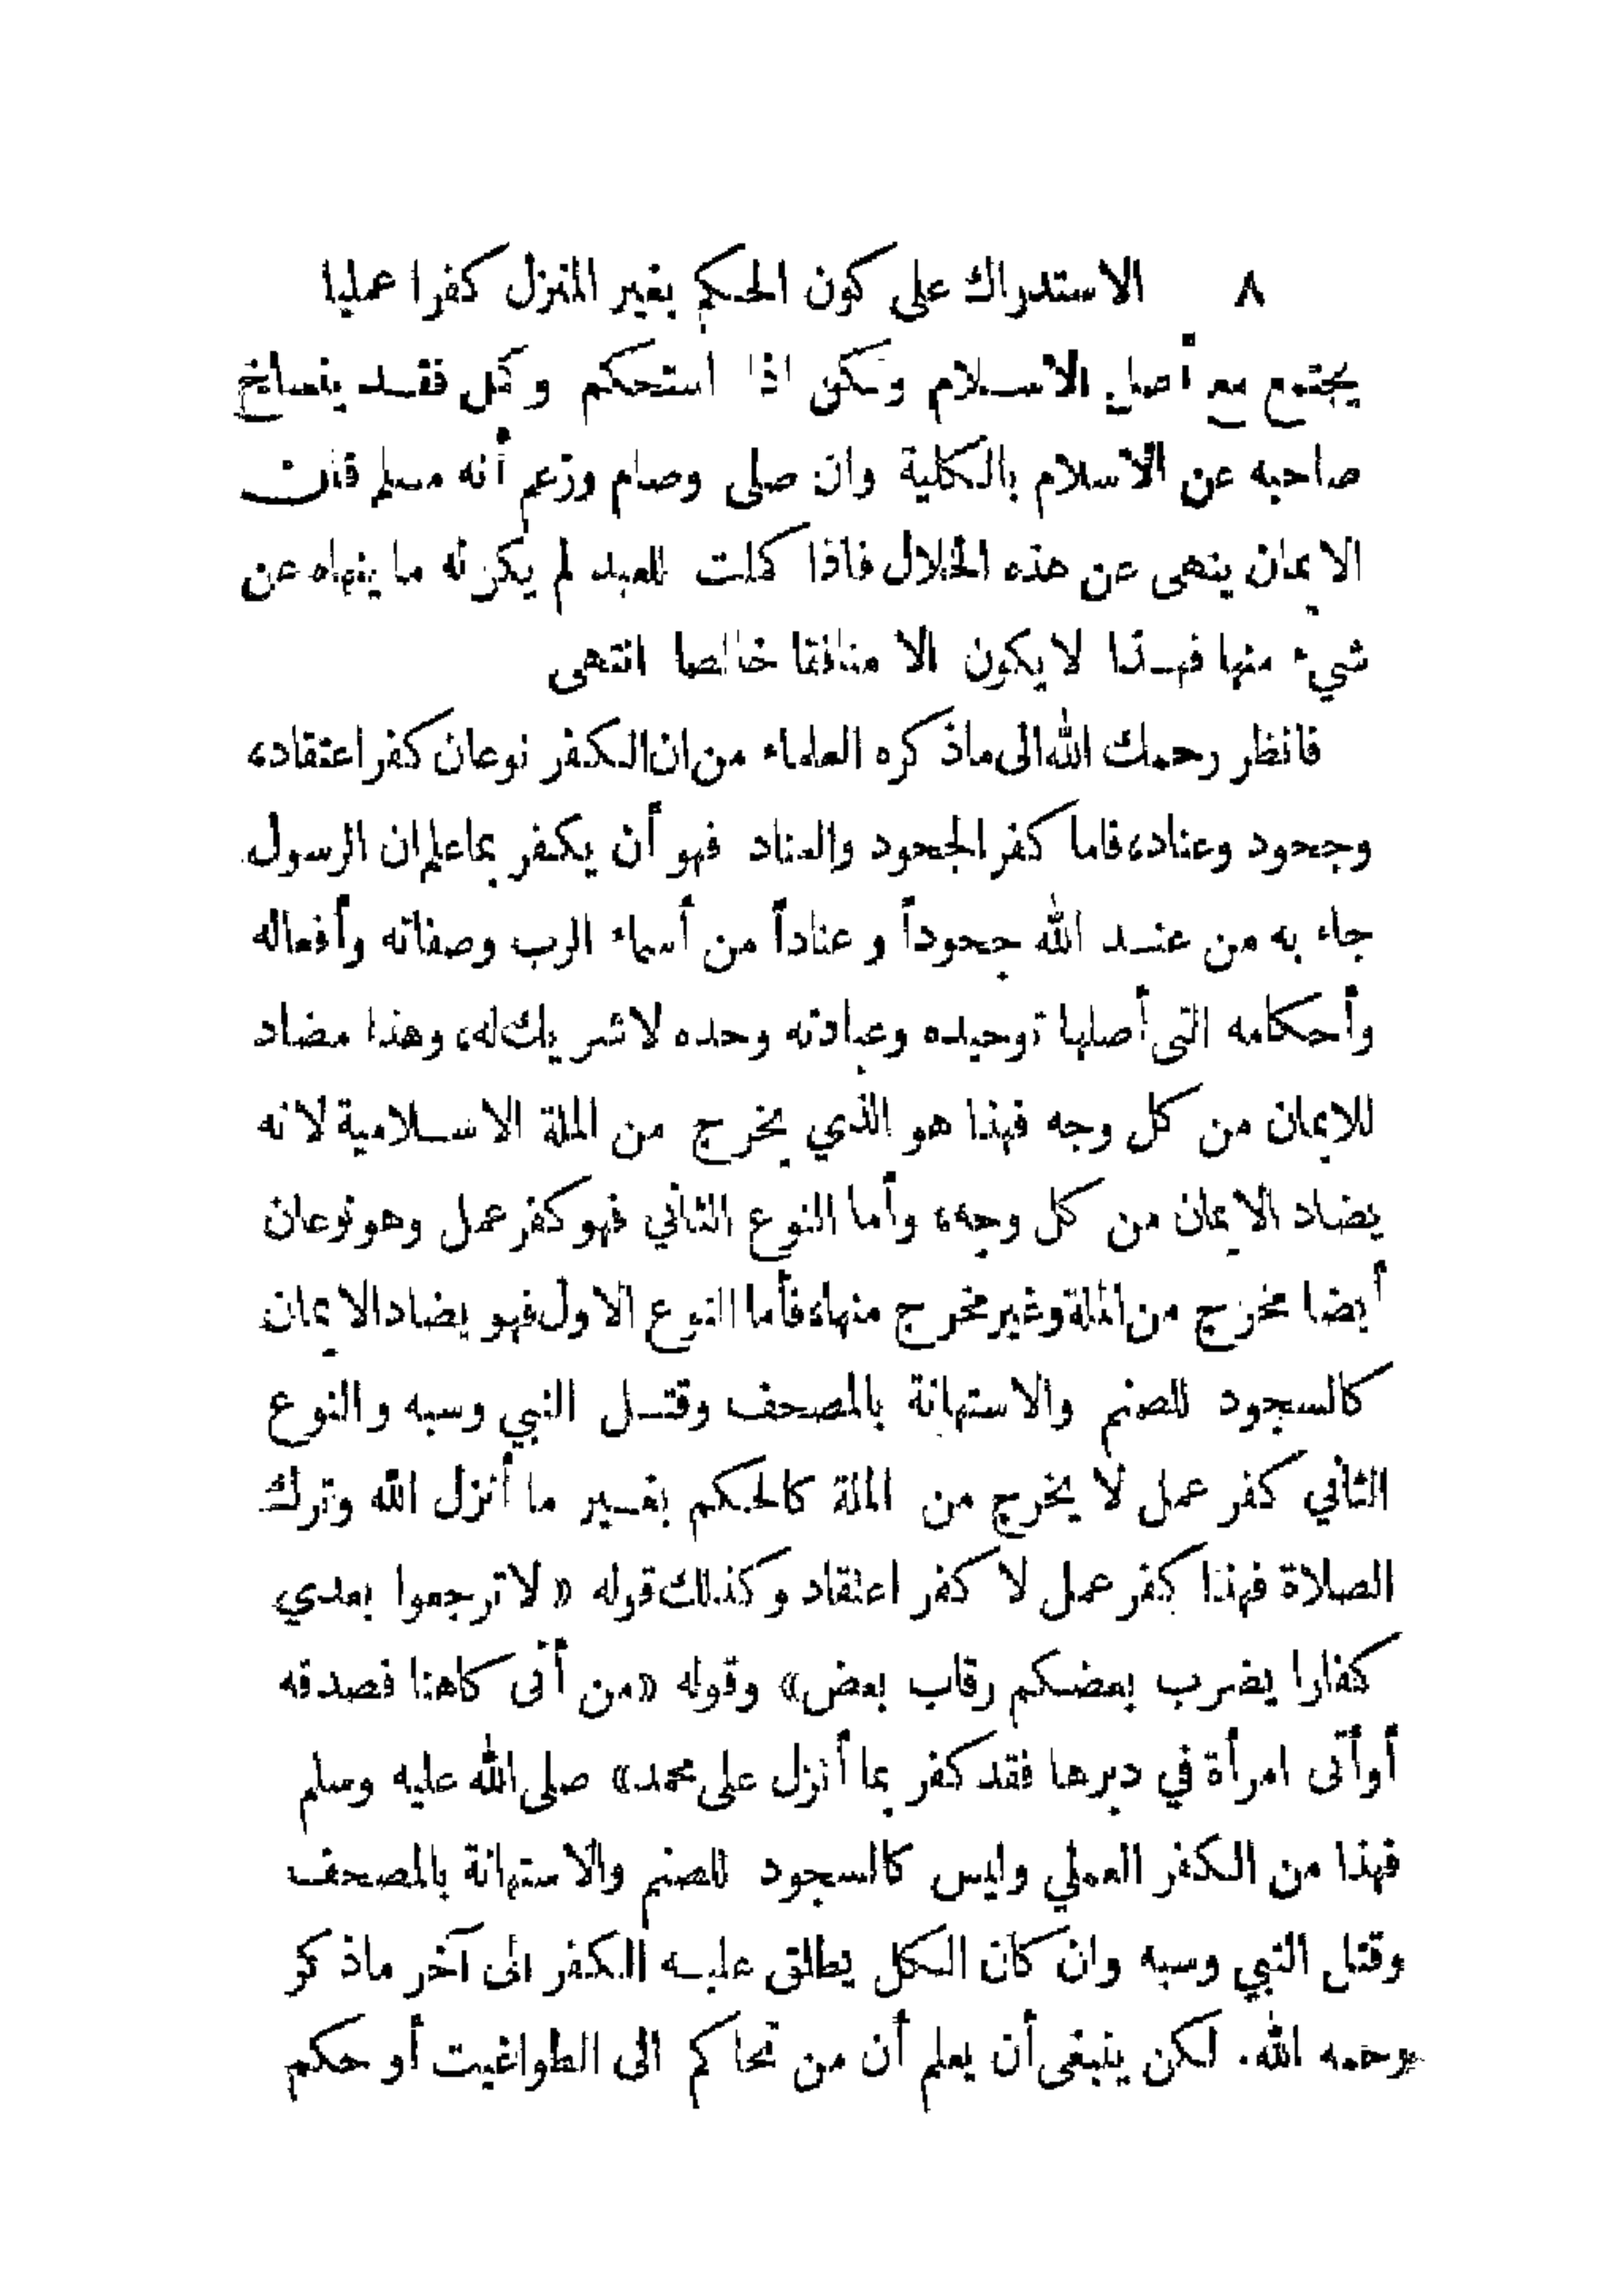 ٨ الاستدراك على كون الحكم بغير المنزل كفرا عمليا
يجتمع مع أصل الاسلام ولكن اذا استحكم وكمل فقد ينسلخ
صاحبه عن الاسلام بالكلية وان صلى وصام وزعم أنه مسلم فان
الايمان ينهى عن هذه الخلال فاذا كملت للعبد لم يكن له ما ينهاه عن
شيء منها فهذا لا يكون الا منافقا خالصا انتهى
فانظر رحمك الله الى ماذكره العلماء من ان الكفر نوعان كفر اعتقاد،
وجحود وعناد، فاما كفر الجحود والعناد فهو أن يكفر بما علم ان الرسول
جاء به من عند الله جحوداً وعناداً من أسماء الرب وصفاته وأفعاله
وأحكامه التى أصلها توحيده وعبادته وحده لاشريك له، وهذا مضاد
للايمان من كل وجه فهذا هو الذي يخرج من الملة الاسلامية لانه
يضاد الايمان من كل وجه، وأما النوع الثاني فهو كفر عمل وهو نوعان
أيضا مخرج من الملة وغير مخرج منها، فأما النوع الاول فهو يضاد الايمان
كالسجود للصنم والاستهانة بالمصحف وقتل النبي وسبه والنوع
الثاني كفر عمل لا يخرج من الملة كالحكم بغير ما أنزل الله وترك
الصلاة فهذا كفر عمل لا كفر اعتقاد وكذلك قوله «لا ترجعوا بعدي
كفارا يضرب بعضكم رقاب بعض» وقوله «من أتى كاهنا فصدقه
أو أتى امرأة في دبرها فقد كفر بما أنزل على محمد» صلى الله عليه وسلم
فهذا من الكفر العملي وليس كالسجود للصنم والاستهانة بالمصحف
وقتل النبي وسبه وان كان الكل يطلق عليه الكفر الى آخر ماذكر
رحمه الله. لكن ينبغى أن يعلم أن من تحاكم الى الطواغيت أو حكم